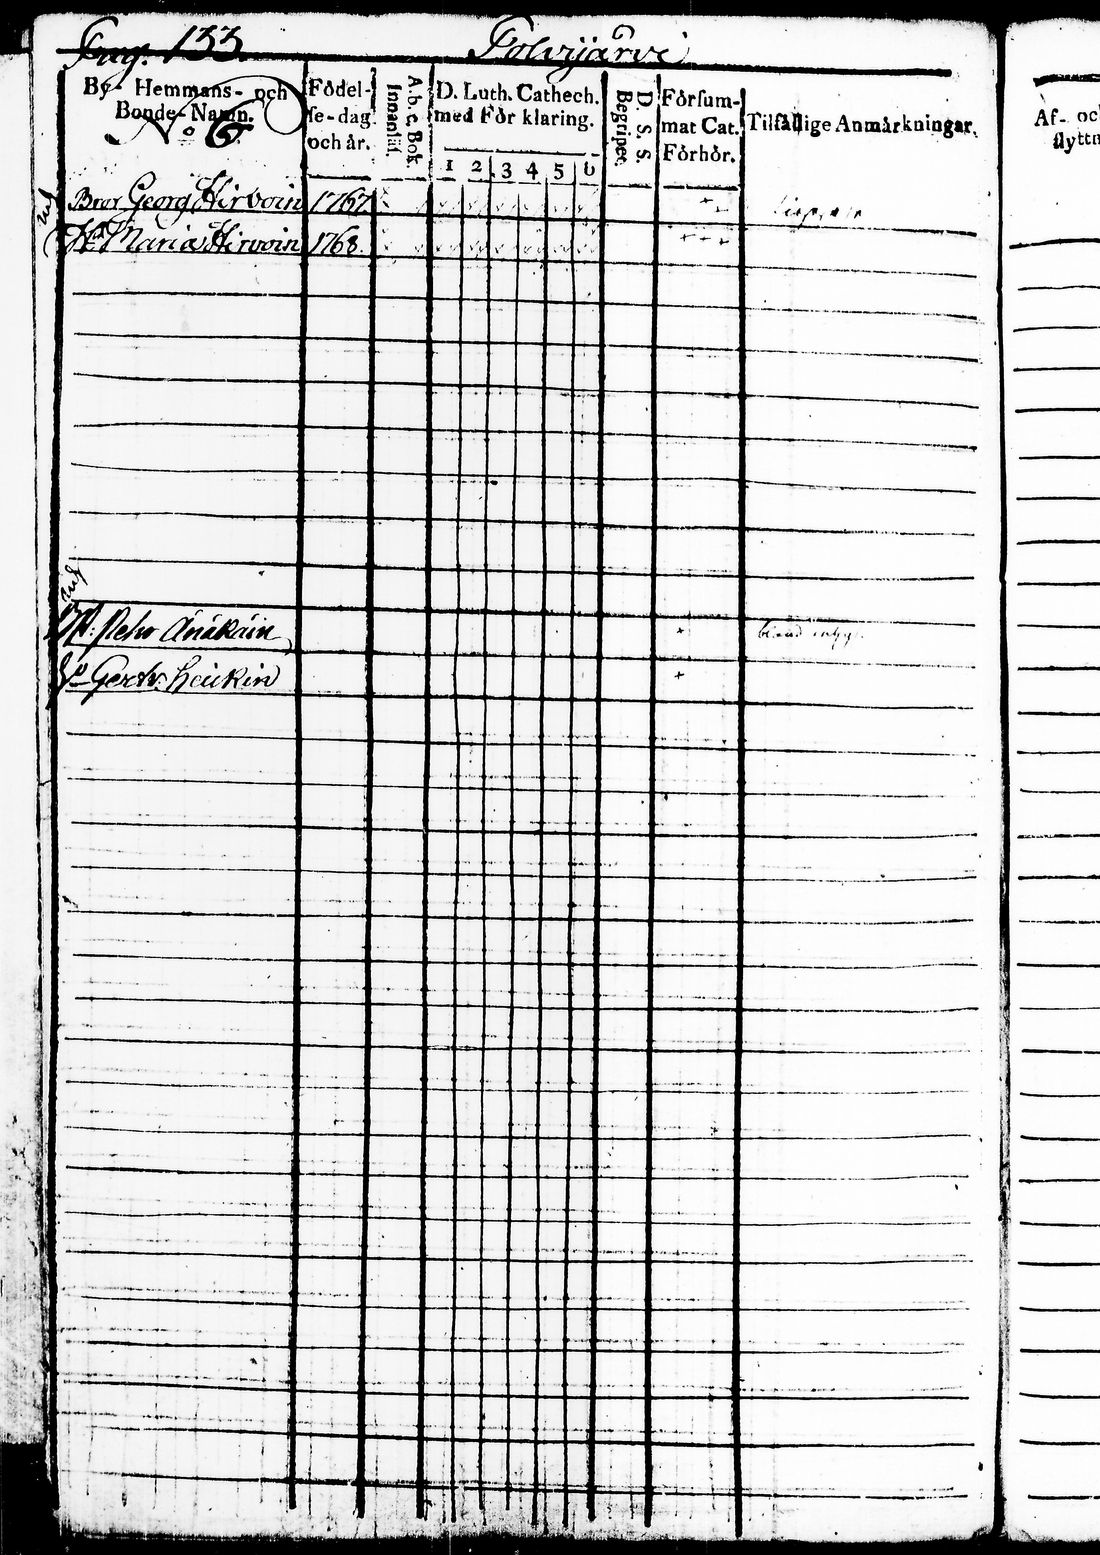 Pag. 133. Polvijärvi
By- Hemmans- och
Bonde-Namn.
No 6
Födel-
se-dag
och år.
A.b.c. Bok.
Innantil.
D. Luth. Cathech.
med Förklaring.
1 2 3 4 5 6
D. S. S.
Begripet.
Försum-
mat Cat.
Förhör.
Tilfällige Anmärkningar.
Af- och
flyttn
Bror Georg Hirvoin 1767 +
Maria Hirvoin 1768. + + +
Petr Änäkäin +
Gertr. Leukin +